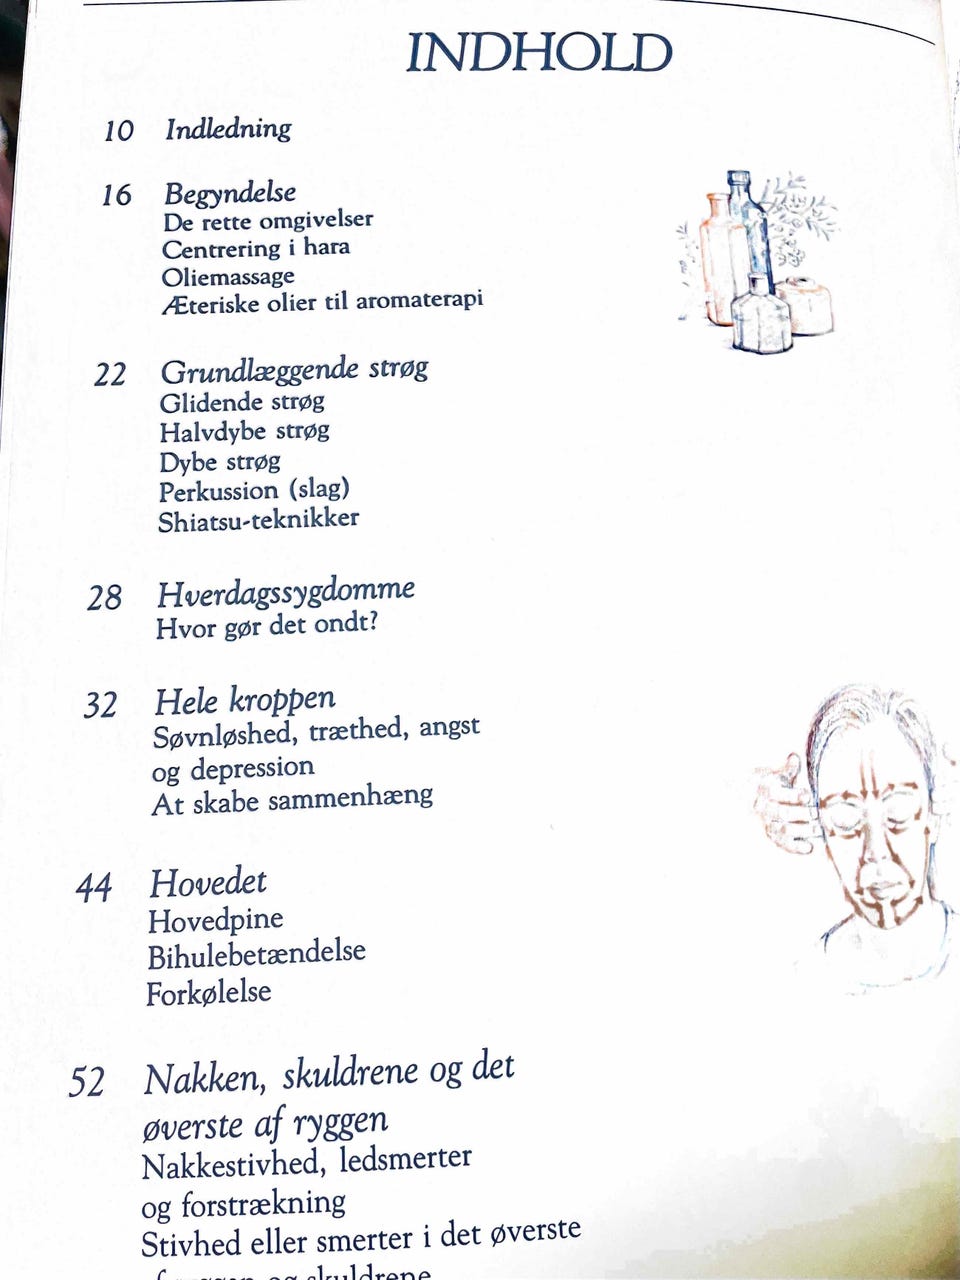 INDHOLD
10 Indledning
16 Begyndelse
De rette omgivelser
Centrering i hara
Oliemassage
Æteriske olier til aromaterapi
22 Grundlæggende strøg
Glidende strøg
Halvdybe strøg
Dybe strøg
Perkussion (slag)
Shiatsu-teknikker
28 Hverdagssygdomme
Hvor gør det ondt?
32 Hele kroppen
Søvnløshed, træthed, angst
og depression
At skabe sammenhæng
44 Hovedet
Hovedpine
Bihulebetændelse
Forkølelse
52 Nakken, skuldrene og det
øverste af ryggen
Nakkestivhed, ledsmerter
og forstrækning
Stivhed eller smerter i det øverste
af ryggen og skuldrene